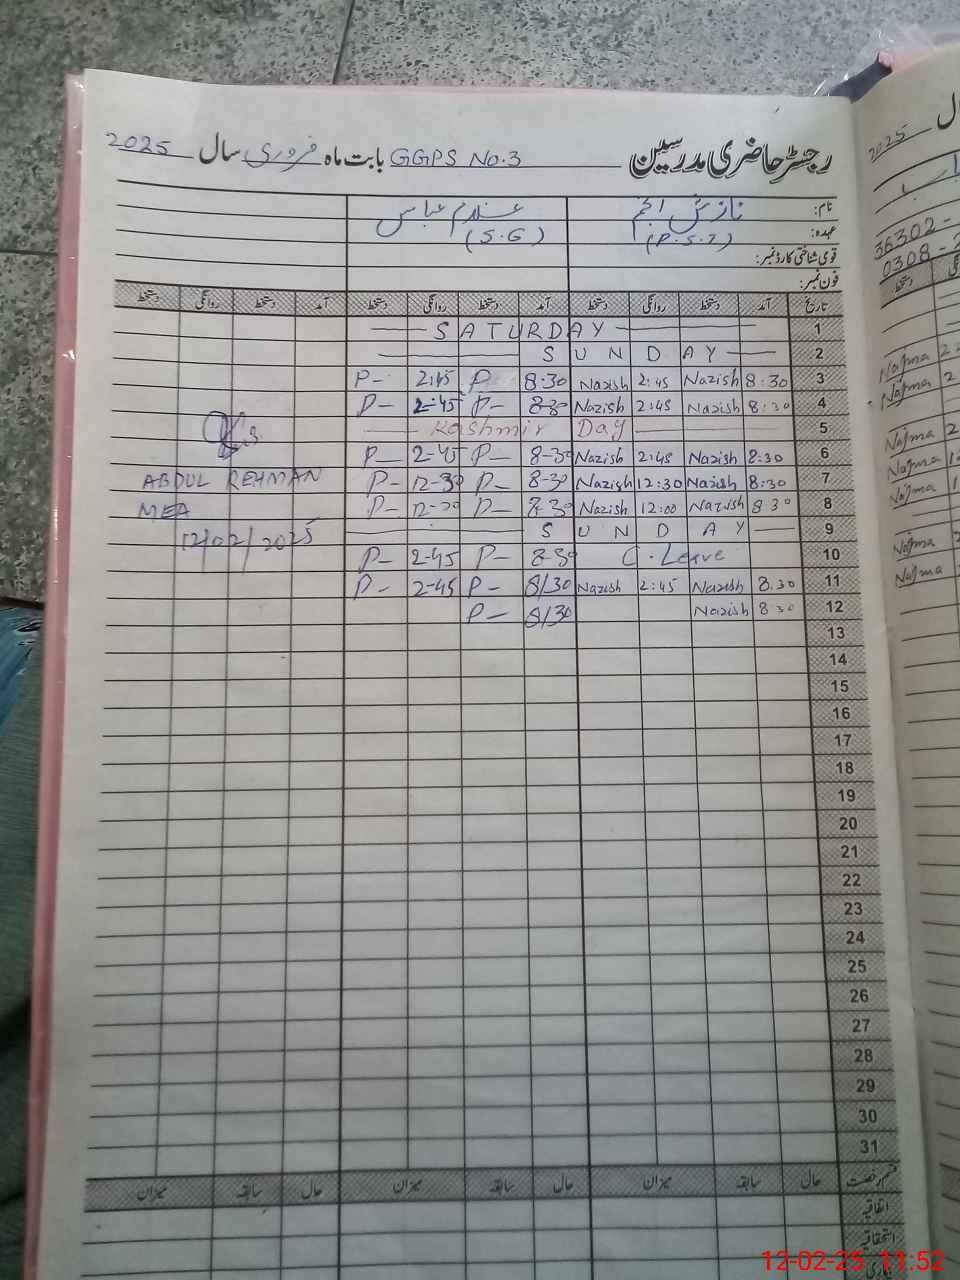 رجسٹر حاضری مدرسین GGPS No.3 بابت ماہ فروری سال 2025
نام: نازش انجم غلام عباس
عہدہ: (P.S.T) (S.G)
قومی شناختی کارڈ نمبر:
فون نمبر:
تاریخ آمد دستخط روانگی دستخط آمد دستخط روانگی دستخط آمد دستخط روانگی دستخط
1 SATURDAY
2 SUNDAY
3 8:30 Nazish 2:45 Nazish 8:30 P- 2:45 P-
4 8:30 Nazish 2:45 Nazish 8-30 P- 2-45 P-
5 Kashmir Day
6 8:30 Nazish 2:45 Nazish 8-30 P- 2-45 P-
7 8:30 Nazish 12:30 Nazish 8-30 P- 12-30 P-
8 8 30 Nazish 12:00 Nazish 8-30 P- P-
9 SUNDAY
10 C. Leave 8-30 P- 2-45 P-
11 8.30 Nazish 2:45 Nazish 8/30 P- 2-45 P-
12 8:30 Nazish 8/30 P-
ABDUL REHMAN
MEA
12/02/2025
13
14
15
16
17
18
19
20
21
22
23
24
25
26
27
28
29
30
31
قسم رخصت حال سابقہ میزان حال سابقہ میزان حال سابقہ میزان
اتفاقیہ
استحقاقیہ
2025
36302-
0308-
Najma 2
Najma 2
Najma 2
Najma 1
Najma 1
Najma
Najma
12-02-25 11:52